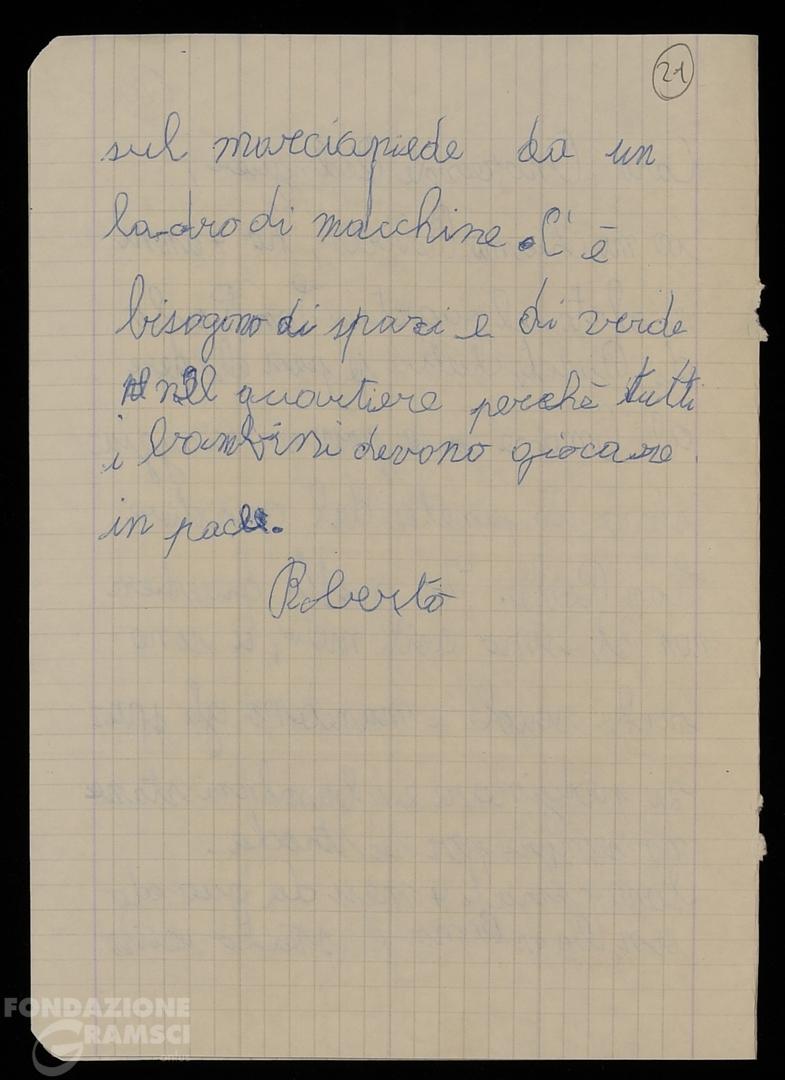 21
sul marciapiede da un
ladro di macchine. C'è
bisogno di spazi e di verde
nel quartiere perchè tutti
i bambini devono giocare
in pace.
Roberto
FONDAZIONE
GRAMSCI
onlus